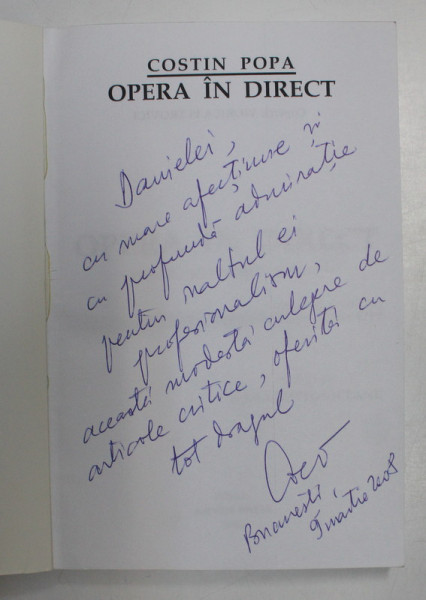 COSTIN POPA
OPERA ÎN DIRECT
Danielei,
cu mare afecțiune și
cu profundă admirație
pentru înaltul ei
profesionalism,
această modestă culegere de
articole critice, oferită cu
tot dragul
București,
9 martie 2008